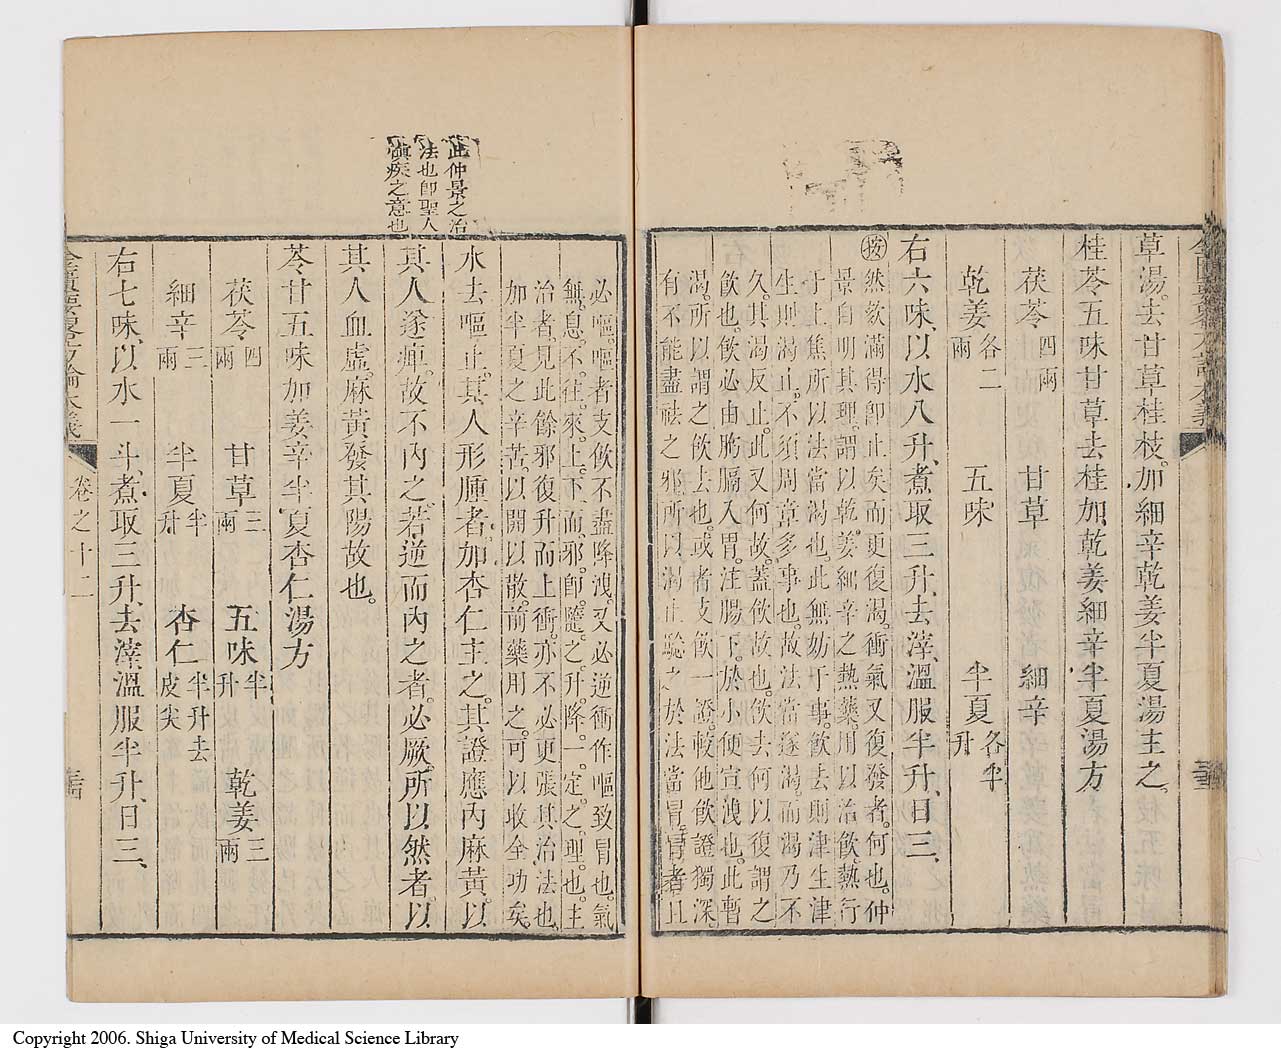 草湯。去甘草桂枝。加細辛乾姜半夏湯主之。
桂苓五味甘草去桂加乾姜細辛半夏湯方
茯苓四兩 甘草 細辛
乾姜各二兩 五味 半夏各半升
右六味、以水八升、煮取三升、去滓、溫服半升、日三、
按然欬滿得卽止矣。而更復渴。衝氣又復發者。何也。仲
景自明其理。謂以乾姜細辛之熱藥用以治飲。熱行
于上焦所以法當渴也。此無妨于事。飲去則津生津
生則渴止。不須周章多事也。故法當遂渴。而渴乃不
久。其渴反止。此又何故。蓋飲故也。飲去何以復謂之
飲也。飲必由胸膈入胃。注腸下。於小便宣洩也。此暫
渴。所以謂之飲去也。或者支飲一證。較他飲證獨深。
有不能盡祛之邪。所以渴止聽之。於法當冒。冒者且
必嘔。嘔者支飲不盡降洩。又必逆衝作嘔致冒也。氣
無。息。不。往。來。上。下。而。邪。卽。隨。之。升。降。一。定。之。理。也。主
治者。見此餘邪復升而上衝。亦不必更張其治法也。
加半夏之辛苦。以開以散。前藥用之。可以收全功矣。
此仲景之治
法也卽聖人
愼疾之意也
水去嘔止。其人形腫者。加杏仁主之。其證應內麻黃。以
其人遂痺。故不內之。若逆而內之者。必厥。所以然者。以
其人血虛。麻黃發其陽故也。
苓甘五味加姜辛半夏杏仁湯方
茯苓四兩 甘草三兩 五味半升 乾姜三兩
細辛三兩 半夏半升 杏仁半升去皮尖
右七味、以水一斗、煮取三升、去滓、溫服半升、日三、
金匱要畧方論本義 卷之十二
Copyright 2006. Shiga University of Medical Science Library